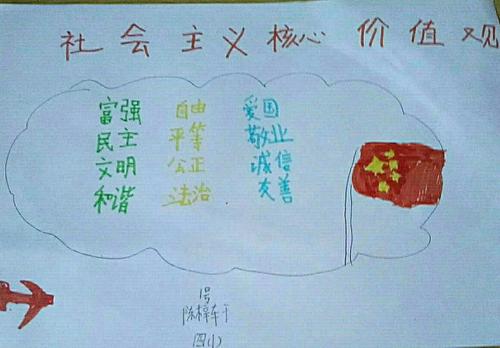 社会主义核心价值观
富强 自由 爱国
民主 平等 敬业
文明 公正 诚信
和谐 法治 友善
1号